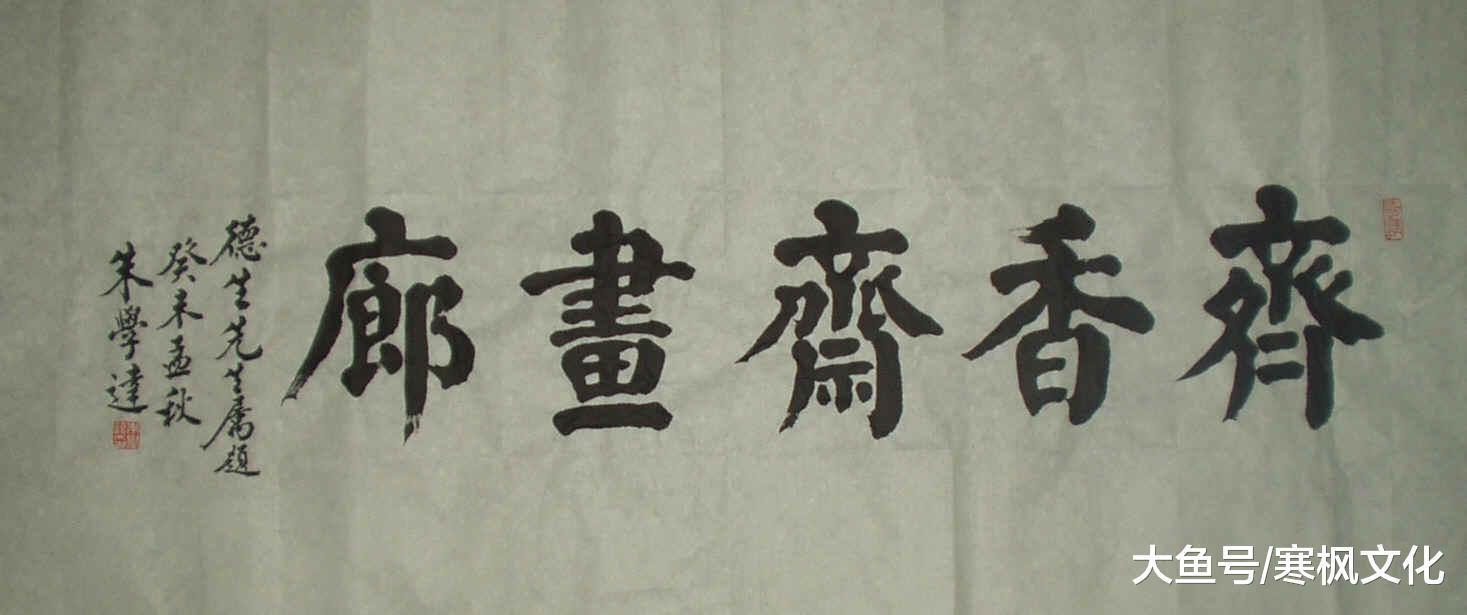 齊香齋畫廊
德生先生屬題
癸未孟秋
朱學達
大鱼号/寒枫文化